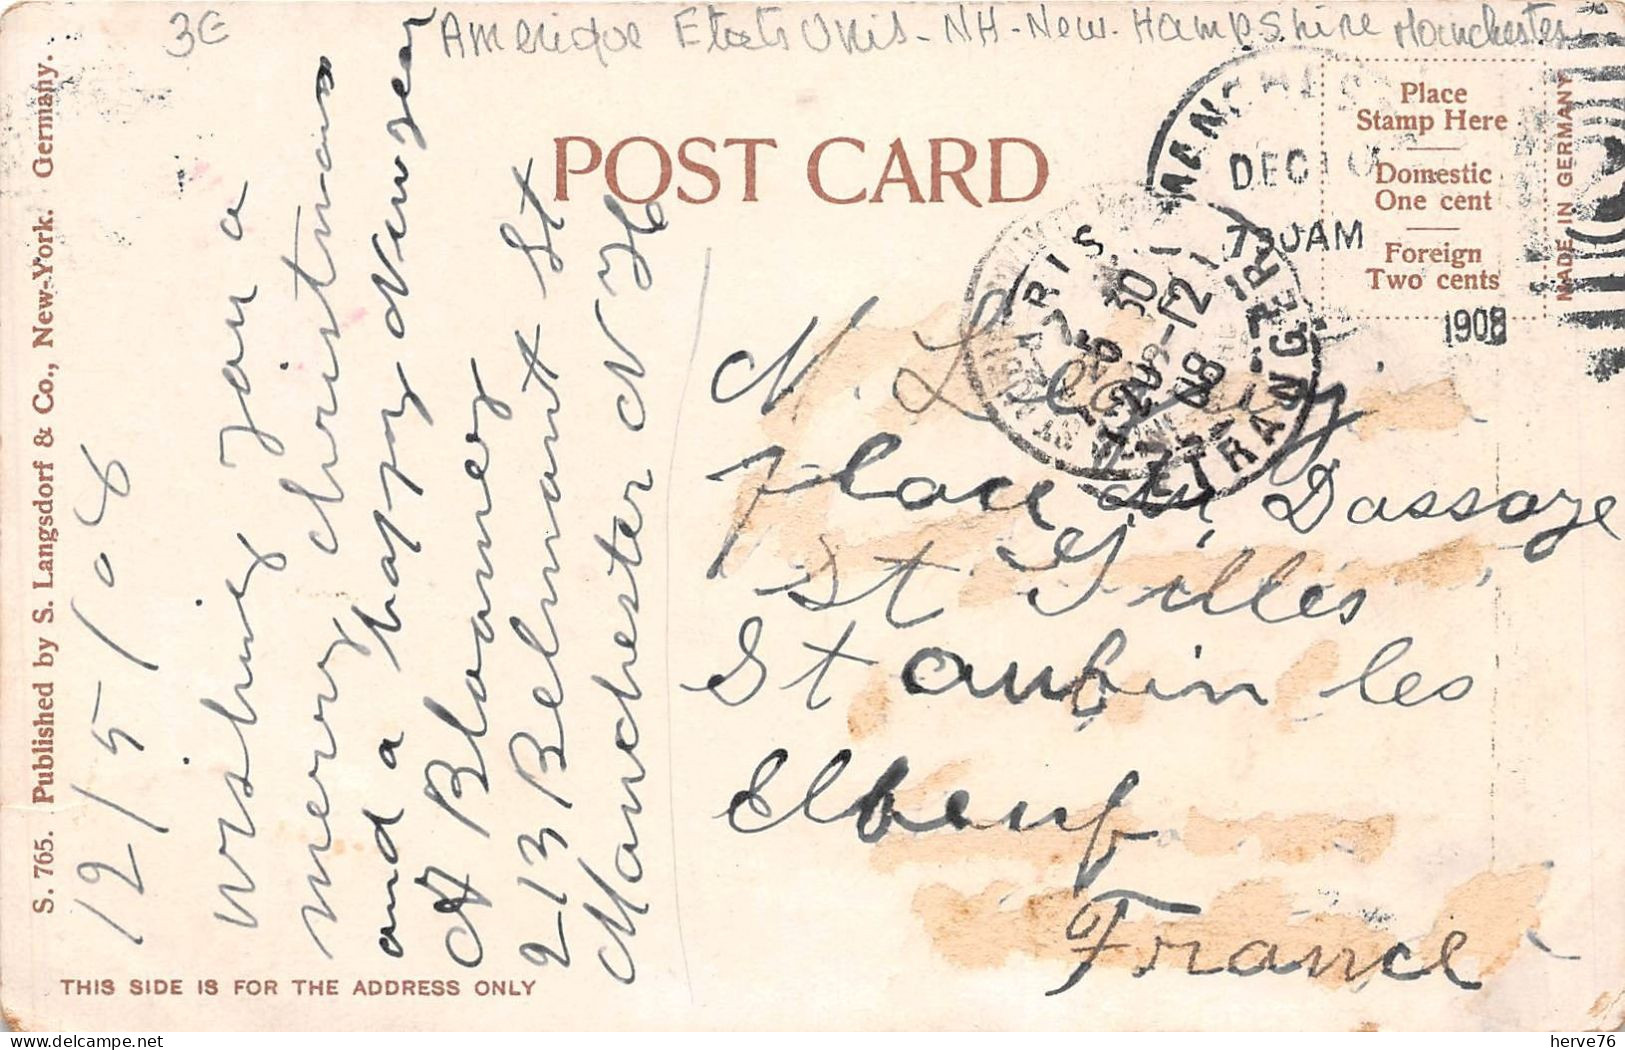 3€ Amerique Etats Unis - NH - New. Hampshire Manchester
POST CARD
Place
Stamp Here
Domestic
One cent
Foreign
Two cents
MADE IN GERMANY
MANCHES
DEC 10
730AM
1908
PARIS
ETRANGER
S. 765. Published by S. Langsdorf & Co., New-York. Germany.
12/5/08
wishing you a
merry christmas
and a happy New year
A Bloomey
213 Belmont St
Manchester N H
M.
Place du Dassage
St Gilles
St aubin les
Elbeuf
France
THIS SIDE IS FOR THE ADDRESS ONLY
hervé76